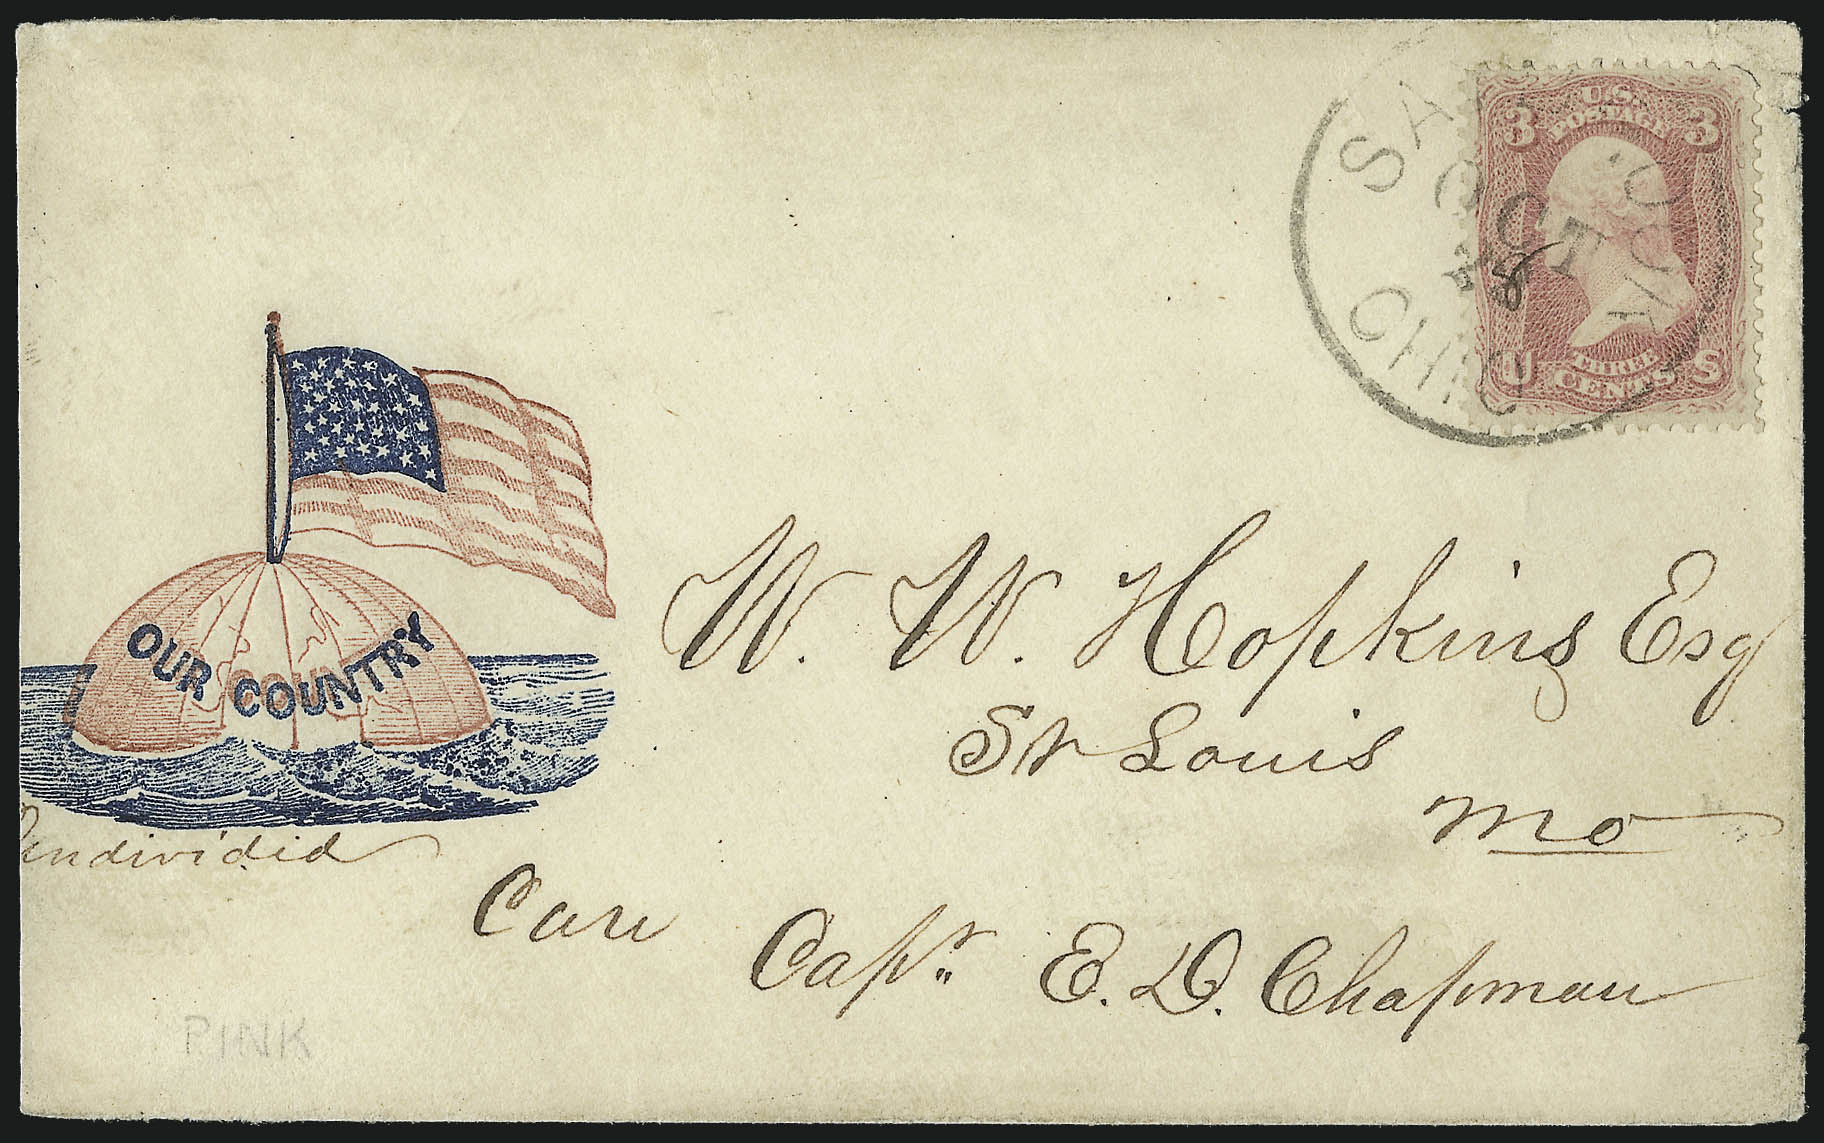 U.S.
POSTAGE
3 3
THREE
CENTS
U S
OCT
OHIO
OUR COUNTRY
Undividid
W. W. Hopkins Esq
St Louis
Mo
Care Capt. E. D. Chapman
PINK